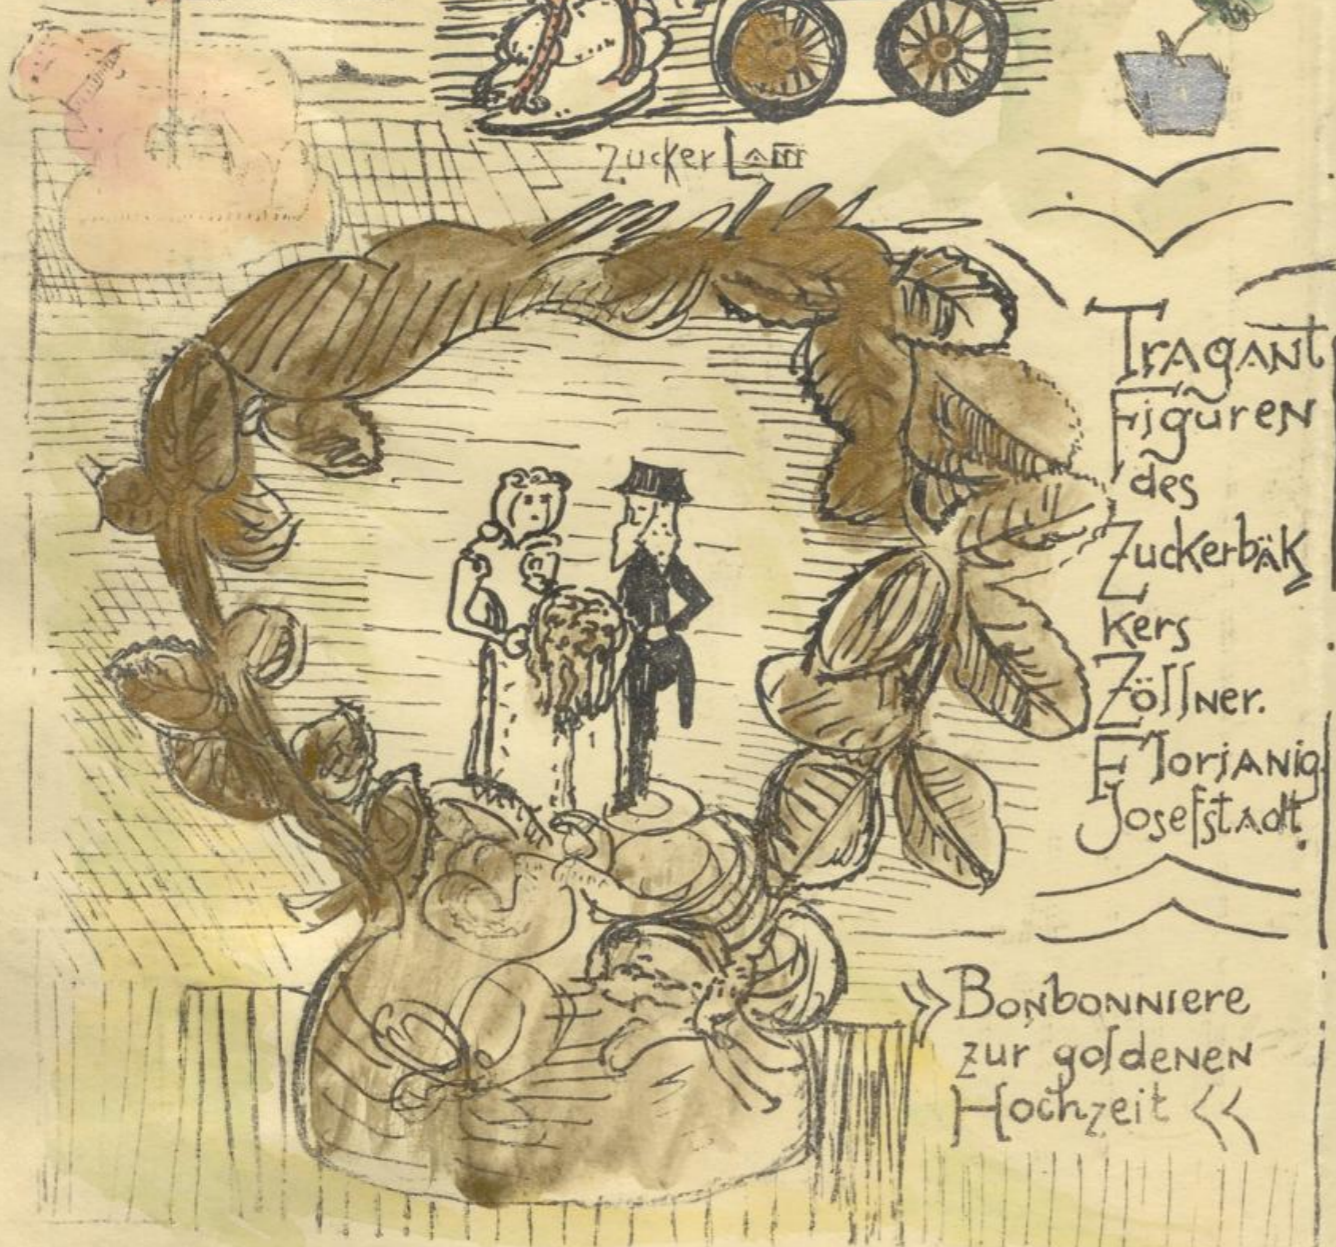 Zucker Lam̅
Tragant
Figuren
des
Zuckerbäk
kers
Zöllner.
Florianig.
Josefstadt.
»Bonbonniere
zur goldenen
Hochzeit «